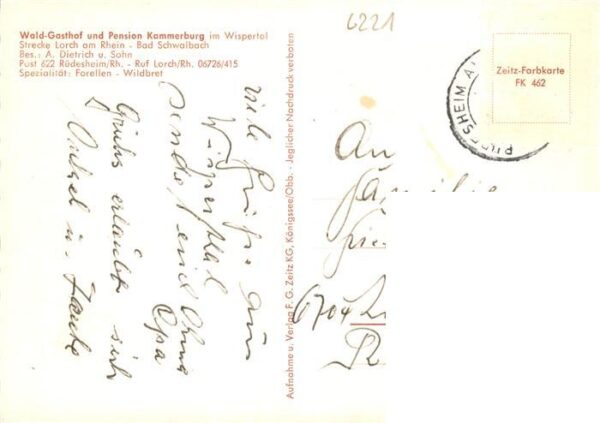 Wald-Gasthof und Pension Kammerburg im Wispertal
Strecke Lorch am Rhein - Bad Schwalbach
Bes.: A. Dietrich u. Sohn
Post 622 Rüdesheim/Rh. - Ruf Lorch/Rh. 06726/415
Spezialität: Forellen - Wildbret
6221
Zeitz-Farbkarte
FK 462
DESHEIM A
Aufnahme u. Verlag F. G. Zeitz KG, Königssee/Obb. - Jeglicher Nachdruck verboten
viele Grüße aus
Wispertal
sendet euch Oma
Opa
Grüße erlaubt sich
Onkel u. Tante
An
Familie
6704